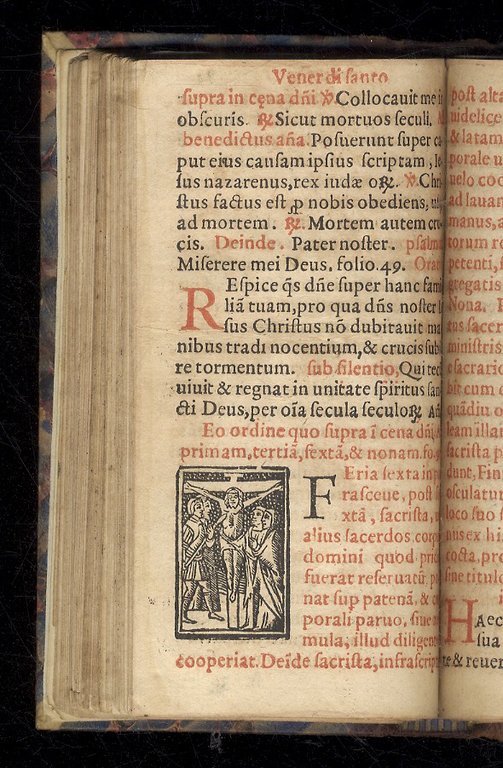 Vener di santo
supra in cęna dñi ℣ Collocauit me i
obscuris. ℟ Sicut mortuos seculi.
benedictus aña. Posuerunt super c
put eius causam ipsius scriptam, Ie
sus nazarenus, rex iudæ oꝶ. ℣ Chri
stus factus est ꝓ nobis obediens, us
ad mortem. ℟. Mortem autem cru
cis. Deinde. Pater noster. psalm
Miserere mei Deus. folio. 49. Orat
REspice q̃s dñe super hanc fami
liã tuam, pro qua dñs noster I
sus Christus nõ dubitauit ma
nibus tradi nocentium, & crucis sub
re tormentum. sub silentio, Qui tec
uiuit & regnat in unitate spiritus san
cti Deus, per oĩa secula seculoꝶ Am
Eo ordine quo supra ĩ cena dñi,
primam, tertiã, sextã, & nonam. fo.
FEria sexta in p
rasceue, post s
xtã, sacrista, u
alius sacerdos corp
domini quod prid
fuerat reseruatũ, p
nat sup patenã, & c
porali paruo, siue a
mula, illud diligent
cooperiat. Deĩde sacrista, infrascrip
post alta
uidelice
& latam
porale u
uelo coo
ad lauan
manus, a
torum re
petenti, s
gregatis
Nona.
tus sacer
ministris
e sacrario
bit cum
quãdiu o
leam illam
sacrista p
dunt, Fin
osculatur
loco suo
nus ex hi
costa, pro
sine titulo
HAec
sua
te & reuer